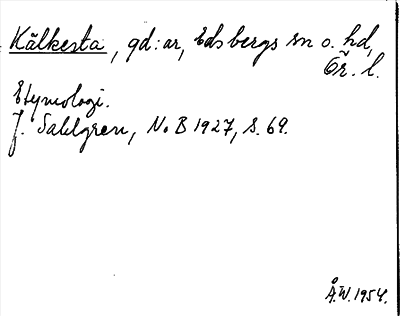 Kälkesta, gd:ar, Edsbergs sn o. hd,
Ör. l.
Etymologi.
J. Sahlgren, NoB 1927, s. 69.
Å.W. 1954.